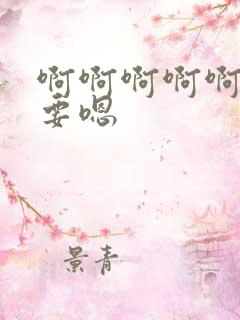 啊啊啊啊啊
要嗯
景青